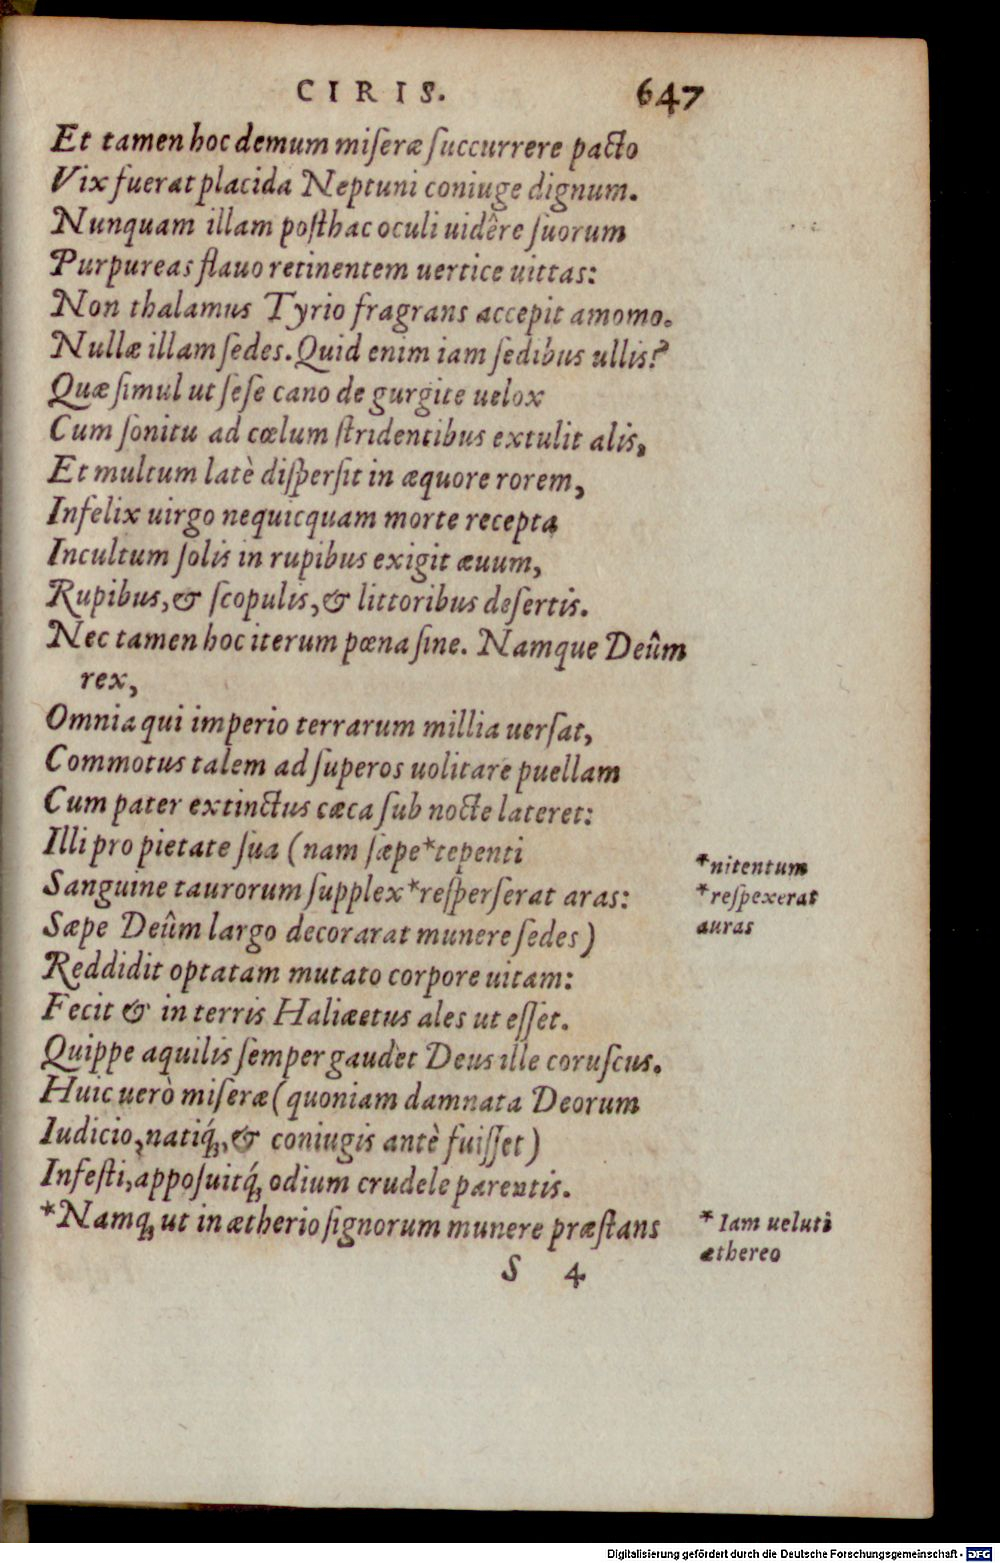 CIRIS. 647
Et tamen hoc demum miseræ succurrere pacto
Vix fuerat placida Neptuni coniuge dignum.
Nunquam illam posthac oculi uidêre suorum
Purpureas flauo retinentem uertice uittas:
Non thalamus Tyrio fragrans accepit amomo.
Nullæ illam sedes. Quid enim iam sedibus ullis?
Quæ simul ut sese cano de gurgite uelox
Cum sonitu ad cœlum stridentibus extulit alis,
Et multum latè dispersit in æquore rorem,
Infelix uirgo nequicquam morte recepta
Incultum solis in rupibus exigit æuum,
Rupibus, & scopulis, & littoribus desertis.
Nec tamen hoc iterum pœna sine. Namque Deûm
rex,
Omnia qui imperio terrarum millia uersat,
Commotus talem ad superos uolitare puellam
Cum pater extinctus cæca sub nocte lateret:
Illi pro pietate sua (nam sæpe *tepenti
*nitentum
Sanguine taurorum supplex *resperserat aras:
*respexerat
auras
Sæpe Deûm largo decorarat munere sedes)
Reddidit optatam mutato corpore uitam:
Fecit & in terris Haliæetus ales ut esset.
Quippe aquilis semper gaudet Deus ille coruscus.
Huic uerò miseræ (quoniam damnata Deorum
Iudicio, natiq́;, & coniugis antè fuisset)
Infesti, apposuitq́; odium crudele parentis.
*Namq; ut in ætherio signorum munere præstans
* Iam ueluti
æthereo
S 4
Digitalisierung gefördert durch die Deutsche Forschungsgemeinschaft - DFG